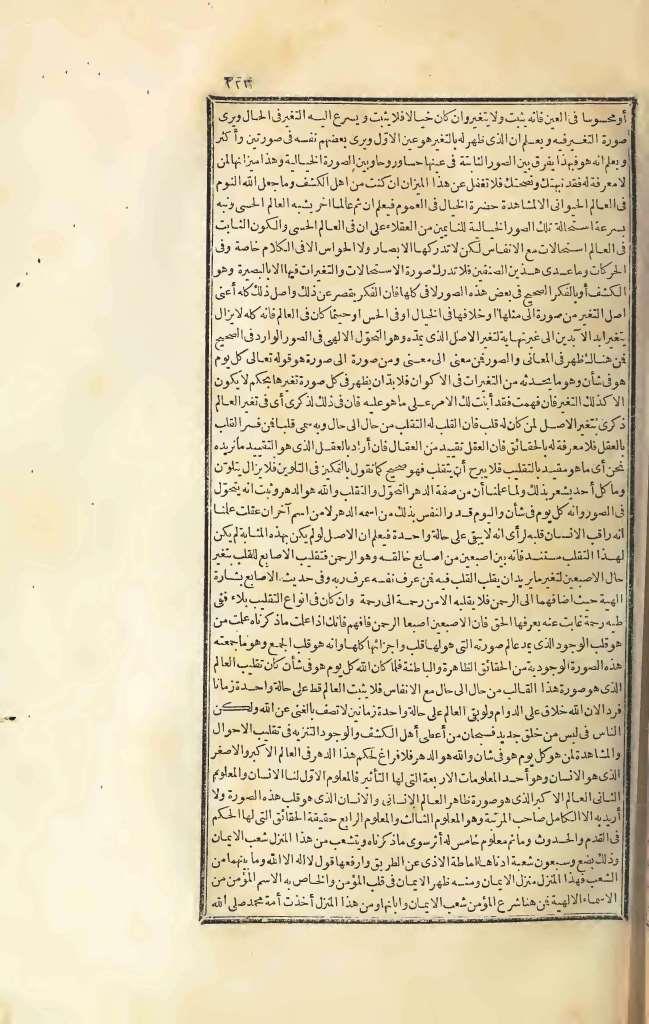 أو محسوسا فى العين فانه يثبت ولا يتغير وان كان خيالا فلا يثبت ويسرع اليه التغير فى الحال ويرى
صورة التغير فيه ويعلم ان الذى ظهر له بالتغير هو عين الاول ويرى بعضهم نفسه فى صورتين وأكثر
ويعلم انه هو فبهذا يفرق بين الصور الثابتة فى عينها حسا وروحا وبين الصورة الخيالية وهذا ميزانها لمن
لا معرفة له فقد نبهتك ونصحتك فلا تغفل عن هذا الميزان ان كنت من اهل الكشف وما جعل الله النوم
فى العالم الحيوانى الا لمشاهدة حضرة الخيال فى العموم فيعلم ان ثم عالما اخر يشبه العالم الحسى ونبه
بسرعة استحالة تلك الصور الخيالية للنايمين من العقلاء على ان فى العالم الحسى والكون الثابت
فى العالم استحالات مع الانفاس لكن لا تدركها الابصار ولا الحواس الا فى الكلام خاصة وفى
الحركات وما عدى هذين الصنفين فلا تدرك صورة الاستحالات والتغيرات فيها الا بالبصيرة وهو
الكشف أو بالفكر الصحيح فى بعض هذه الصور لا فى كلها فان الفكر يقصر عن ذلك واصل ذلك كله أعنى
اصل التغير من صورة الى مثلها او خلافها فى الخيال او فى الحس او حيثما كان فى العالم فانه كله لا يزال
يتغير ابد الآبدين الى غير نهاية لتغير الاصل الذى يمده وهو التحول الالهى فى الصور الوارد فى الصحيح
فمن هنالك ظهر فى المعانى والصور فمن معنى الى معنى ومن صورة الى صورة وهو قوله تعالى كل يوم
هو فى شأن وهو ما يحدثه من التغيرات فى الاكوان فلا بد ان يظهر فى كل صورة تغيرها بحكم لا يكون
الا كذلك التغير فان فهمت فقد أبنت لك الامر على ما هو عليه فان فى ذلك لذكرى أى فى تغير العالم
ذكرى بتغير الاصل لمن كان له قلب فان القلب له التقلب من حال الى حال وبه سمى قلبا فمن فسر القلب
بالعقل فلا معرفة له بالحقائق فان العقل تقييد من العقال فان أراد بالعقل الذى هو التقييد ما نريده
نحن أى ما هو مقيد بالتقليب فلا يبرح أن يتقلب فهو صحيح كما نقول بالتمكين فى التلوين فلا يزال يتلون
وما كل أحد يشعر بذلك ولما علمنا أن من صفة الدهر التحول والتقلب والله هو الدهر وثبت انه يتحول
فى الصور وانه كل يوم فى شأن واليوم قدر النفس بذلك من اسمه الدهر لا من اسم آخر ان عقلت علمنا
انه راقب الانسان قلبه لرأى انه لا يبقى على حالة واحدة فيعلم ان الاصل لو لم يكن بهذه المثابة لم يكن
لهذا التقلب مستند فانه بين اصبعين من اصابع خالقه وهو الرحمن فتقليب الاصابع للقلب بتغير
حال الاصبعين لتغير ما يريد ان يقلب القلب فيه فمن عرف نفسه عرف ربه وفى حديث الاصابع بشارة
الهية حيث اضافهما الى الرحمن فلا يقلبه الا من رحمة الى رحمة وان كان فى انواع التقليب بلاء ففى
طيه رحمة غابت عنه يعرفها الحق فان الاصبعين اصبعا الرحمن فافهم فانك اذا علمت ما ذكرناه علمت من
هو قلب الوجود الذى يمد عالم صورته التى هو لها قلب واجزائها كلها وانه هو قلب الجمع وهو ما جمعته
هذه الصورة الوجودية من الحقائق الظاهرة والباطنة فلما كان الله كل يوم هو فى شأن كان تقليب العالم
الذى هو صورة هذا القالب من حال الى حال مع الانفاس فلا يثبت العالم قط على حالة واحدة زمانا
فردا لان الله خلاق على الدوام ولو بقى العالم على حالة واحدة زمانين لاتصف بالغنى عن الله ولكن
الناس فى لبس من خلق جديد فسبحان من أعطى أهل الكشف والوجود التنزيه فى تقليب الاحوال
والمشاهدة لمن هو كل يوم هو فى شان والله هو الدهر فلا فراغ لحكم هذا الدهر فى العالم الاكبر والاصغر
الذى هو الانسان وهو أحد المعلومات الاربعة التى لها التأثير فالمعلوم الاول لنا الانسان والمعلوم
الثانى العالم الاكبر الذى هو صورة ظاهر العالم الانسانى والانسان الذى هو قلب هذه الصورة ولا
أريد به الا الكامل صاحب المرتبة وهو المعلوم الثالث والمعلوم الرابع حقيقة الحقائق التى لها الحكم
فى القدم والحدوث وما ثم معلوم خامس له أثر سوى ما ذكرناه ويتشعب من هذا المنزل شعب الايمان
وذلك بضع وسبعون شعبة ادناها اماطة الاذى عن الطريق وارفعها قول لا اله الا الله وما بينهما من
الشعب فهذا المنزل منزل الايمان ومنه ظهر الايمان فى قلب المؤمن والخاص به الاسم المؤمن من
الاسماء الالهية فمن هنا شرع المؤمن شعب الايمان وابانها ومن هذا المنزل أخذت أمة محمد صلى الله